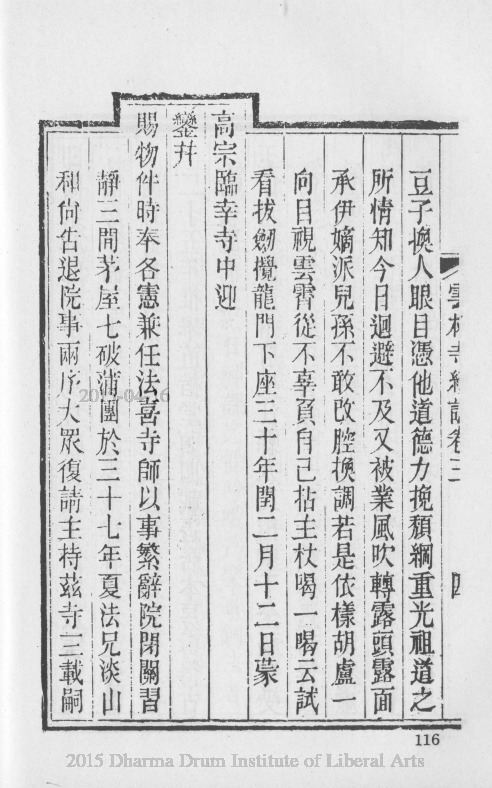 雲林寺續誌卷三 四
豆子換人眼目憑他道德力挽頹綱重光祖道之
所情知今日迴避不及又被業風吹轉露頭露面
承伊嫡派兒孫不敢改腔換調若是依樣胡盧一
向目視雲霄從不辜負自己拈主杖喝一喝云試
看拔劒攪龍門下座三十年閏二月十二日蒙
高宗臨幸寺中迎
鑾幷
賜物件時奉各憲兼任法喜寺師以事繁辭院閉關習
靜三間茅屋七破蒲團於三十七年夏法兄淡山
和尚告退院事兩序大眾復請主持茲寺三載嗣
116
2015 Dharma Drum Institute of Liberal Arts